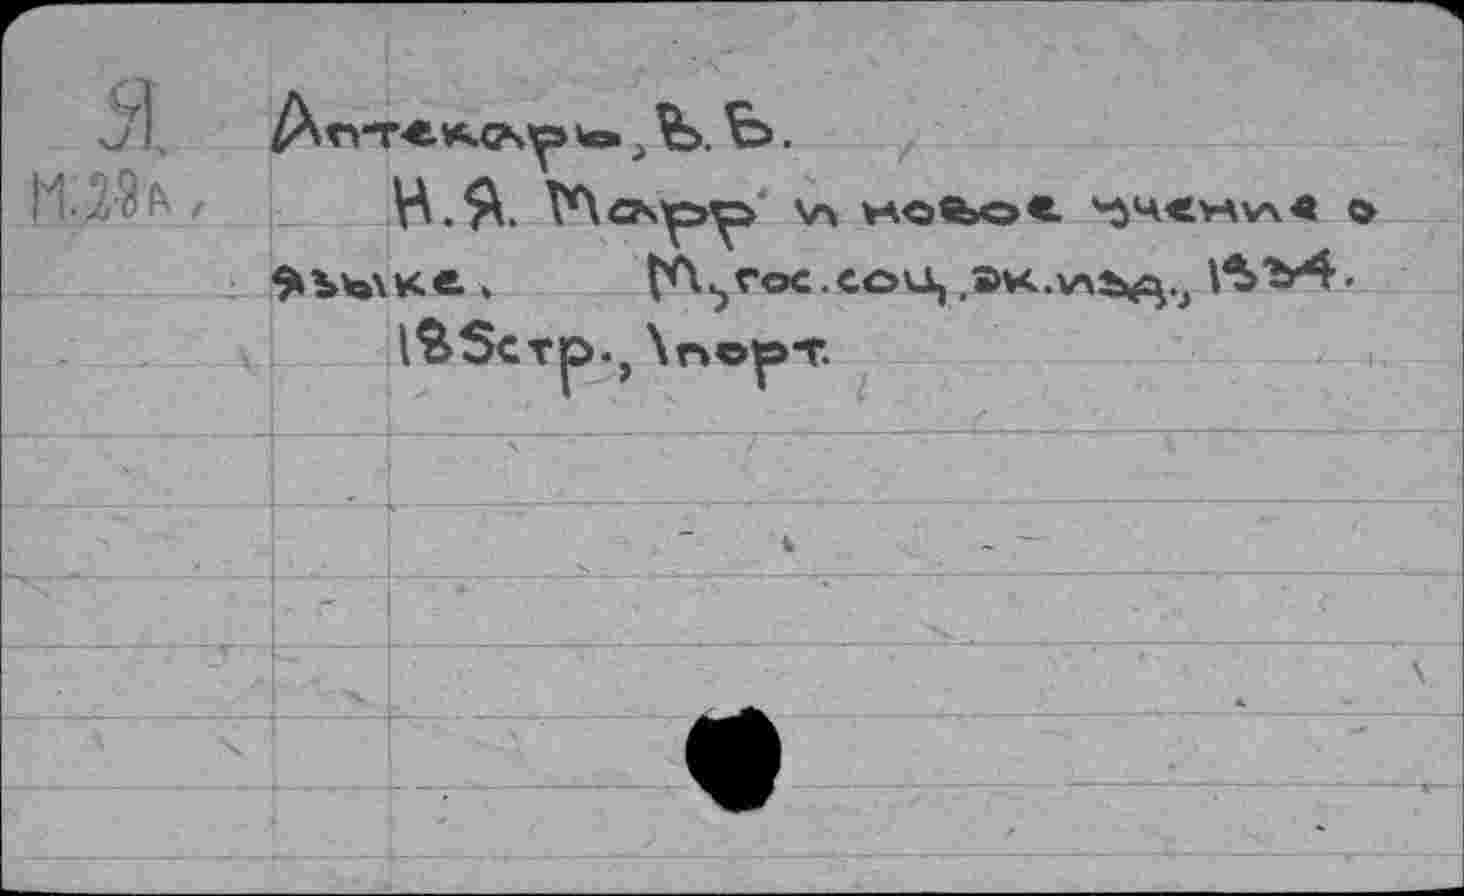 Я.
М.28А,
Аптекарь, В. Б.
Н.Я. Марр и новое учение о
языке. М., Гос.соц.эк.изд., 1934.
185стр., 1порт.